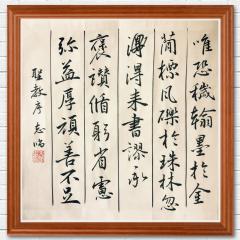 唯恐穢翰墨於金
簡標瓦礫於珠林忽
得来書謬承
褒讚循躬省慮
弥益厚顔善不足
聖教序